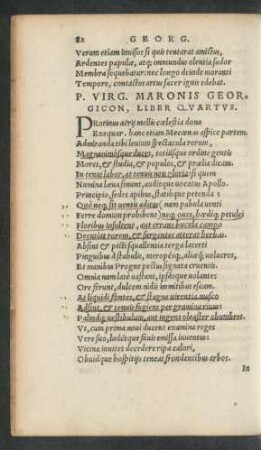 82 GEORG.
Verum etiam inuisos si quis tentarat amictus,
Ardentes papulæ, atq; immundus olentia sudor
Membra sequebatur: nec longo deinde moranti
Tempore, contactos artus sacer ignis edebat.
P. VIRG. MARONIS GEOR-
GICON, LIBER QVARTVS.
PRotinus aërij mellis cœlestia dona
Exequar. hanc etiam Mecœnas aspice partem.
Admiranda tibi leuium spectacula rerum,
Magnanimosque duces, totiusque ordine gentis
Mores, & studia, & populos, & prælia dicam.
In tenui labor, at tenuis non gloria: si quem
Numina læua sinunt, auditque uocatus Apollo.
Principio, sedes apibus, statioque petenda
Quò neq; sit uentis aditus (nam pabula uenti
Ferre domum prohibent) neq; oues, hœdiq; petulci
Floribus insultent, aut errans bucula campo
Decutiat rorem, & surgentes atterat herbas.
Absint & picti squallentia terga lacerti
Pinguibus à stabulis, meropesq;, aliæq; uolucres,
Et manibus Progne pectus signata cruentis.
Omnia nam latè uastant, ipsasque uolantes
Ore ferunt, dulcem nidis immitibus escam.
At liquidi fontes, & stagna uirentia musco
Adsint, & tenuis fugiens per gramina riuus,
Palmaq; uestibulum, aut ingens oleaster obumbret.
Vt, cum prima noui ducent examina reges
Vere suo, ludetque fauis emissa iuuentus:
Vicina inuitet decedere ripa calori,
Obuiaque hospitijs teneat frondentibus arbos.
In